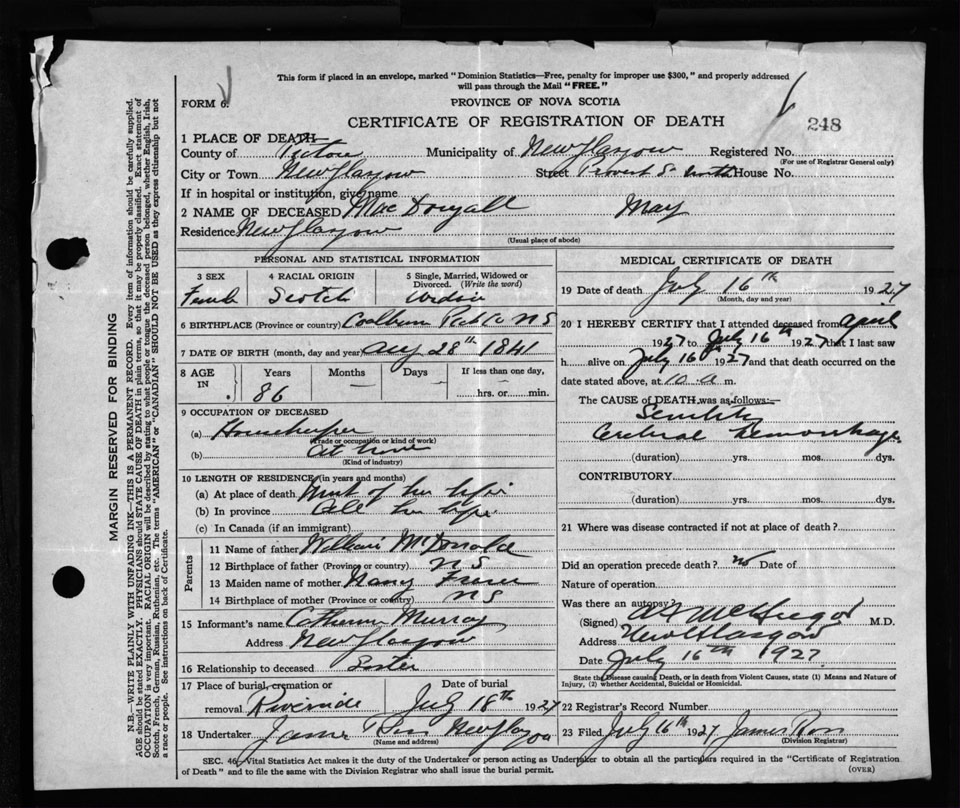 This form if placed in an envelope, marked "Dominion Statistics—Free, penalty for improper use $300," and properly addressed
will pass through the Mail "FREE."
FORM 6.
PROVINCE OF NOVA SCOTIA
CERTIFICATE OF REGISTRATION OF DEATH
248
1 PLACE OF DEATH—
County of Pictou Municipality of New Glasgow Registered No.
(For use of Registrar General only)
City or Town New Glasgow Street Provost St North House No.
If in hospital or institution, give name
2 NAME OF DECEASED MacDougall May
Residence New Glasgow
(Usual place of abode)
PERSONAL AND STATISTICAL INFORMATION
3 SEX 4 RACIAL ORIGIN 5 Single, Married, Widowed or Divorced. (Write the word)
Female Scotch Widow
6 BIRTHPLACE (Province or country) N S
7 DATE OF BIRTH (month, day and year) Aug 28th 1841
8 AGE IN Years Months Days If less than one day,
86 — — hrs. or min.
9 OCCUPATION OF DECEASED
(a) Housekeeper
(Trade or occupation or kind of work)
(b) At home
(Kind of industry)
10 LENGTH OF RESIDENCE (in years and months)
(a) At place of death Most of her life
(b) In province All her life
(c) In Canada (if an immigrant)
Parents
11 Name of father William McDonald
12 Birthplace of father (Province or country) N S
13 Maiden name of mother Nancy Fraser
14 Birthplace of mother (Province or country) N S
15 Informant's name Catherine Murray
Address New Glasgow
16 Relationship to deceased Sister
17 Place of burial, cremation or removal Riverside
Date of burial July 18th 1927
18 Undertaker James Ross New Glasgow
(Name and address)
MEDICAL CERTIFICATE OF DEATH
19 Date of death July 16th 1927
(Month, day and year)
20 I HEREBY CERTIFY that I attended deceased from April
1927 to July 16th 1927 that I last saw
h alive on July 16th 1927 and that death occurred on the
date stated above, at 10 a m.
The CAUSE of DEATH was as follows:—
Senility
Cerebral Hemorrhage
(duration) yrs. mos. dys.
CONTRIBUTORY
(duration) yrs. mos. dys.
21 Where was disease contracted if not at place of death?
Did an operation precede death? No Date of
Nature of operation
Was there an autopsy?
(Signed) McGregor M.D.
Address New Glasgow
Date July 16th 1927
State the Disease causing Death, or in death from Violent Causes, state (1) Means and Nature of
Injury, (2) whether Accidental, Suicidal or Homicidal.
22 Registrar's Record Number
23 Filed July 16th 1927 James Ross
(Division Registrar)
SEC. 46, Vital Statistics Act makes it the duty of the Undertaker or person acting as Undertaker to obtain all the particulars required in the "Certificate of Registration
of Death" and to file the same with the Division Registrar who shall issue the burial permit.
(OVER)
MARGIN RESERVED FOR BINDING
N.B.—WRITE PLAINLY WITH UNFADING INK—THIS IS A PERMANENT RECORD. Every item of information should be carefully supplied.
AGE should be stated EXACTLY. PHYSICIANS should STATE CAUSE OF DEATH in plain terms, so that it may be properly classified. Exact statement of
OCCUPATION is very important. RACIAL ORIGIN will be described by stating to what people or tongue the deceased person belonged, whether English, Irish,
Scotch, French, German, Russian, Ruthenian, etc. The terms "AMERICAN" or "CANADIAN" SHOULD NOT BE USED as they express citizenship but not
a race or people. See instructions on back of Certificate.